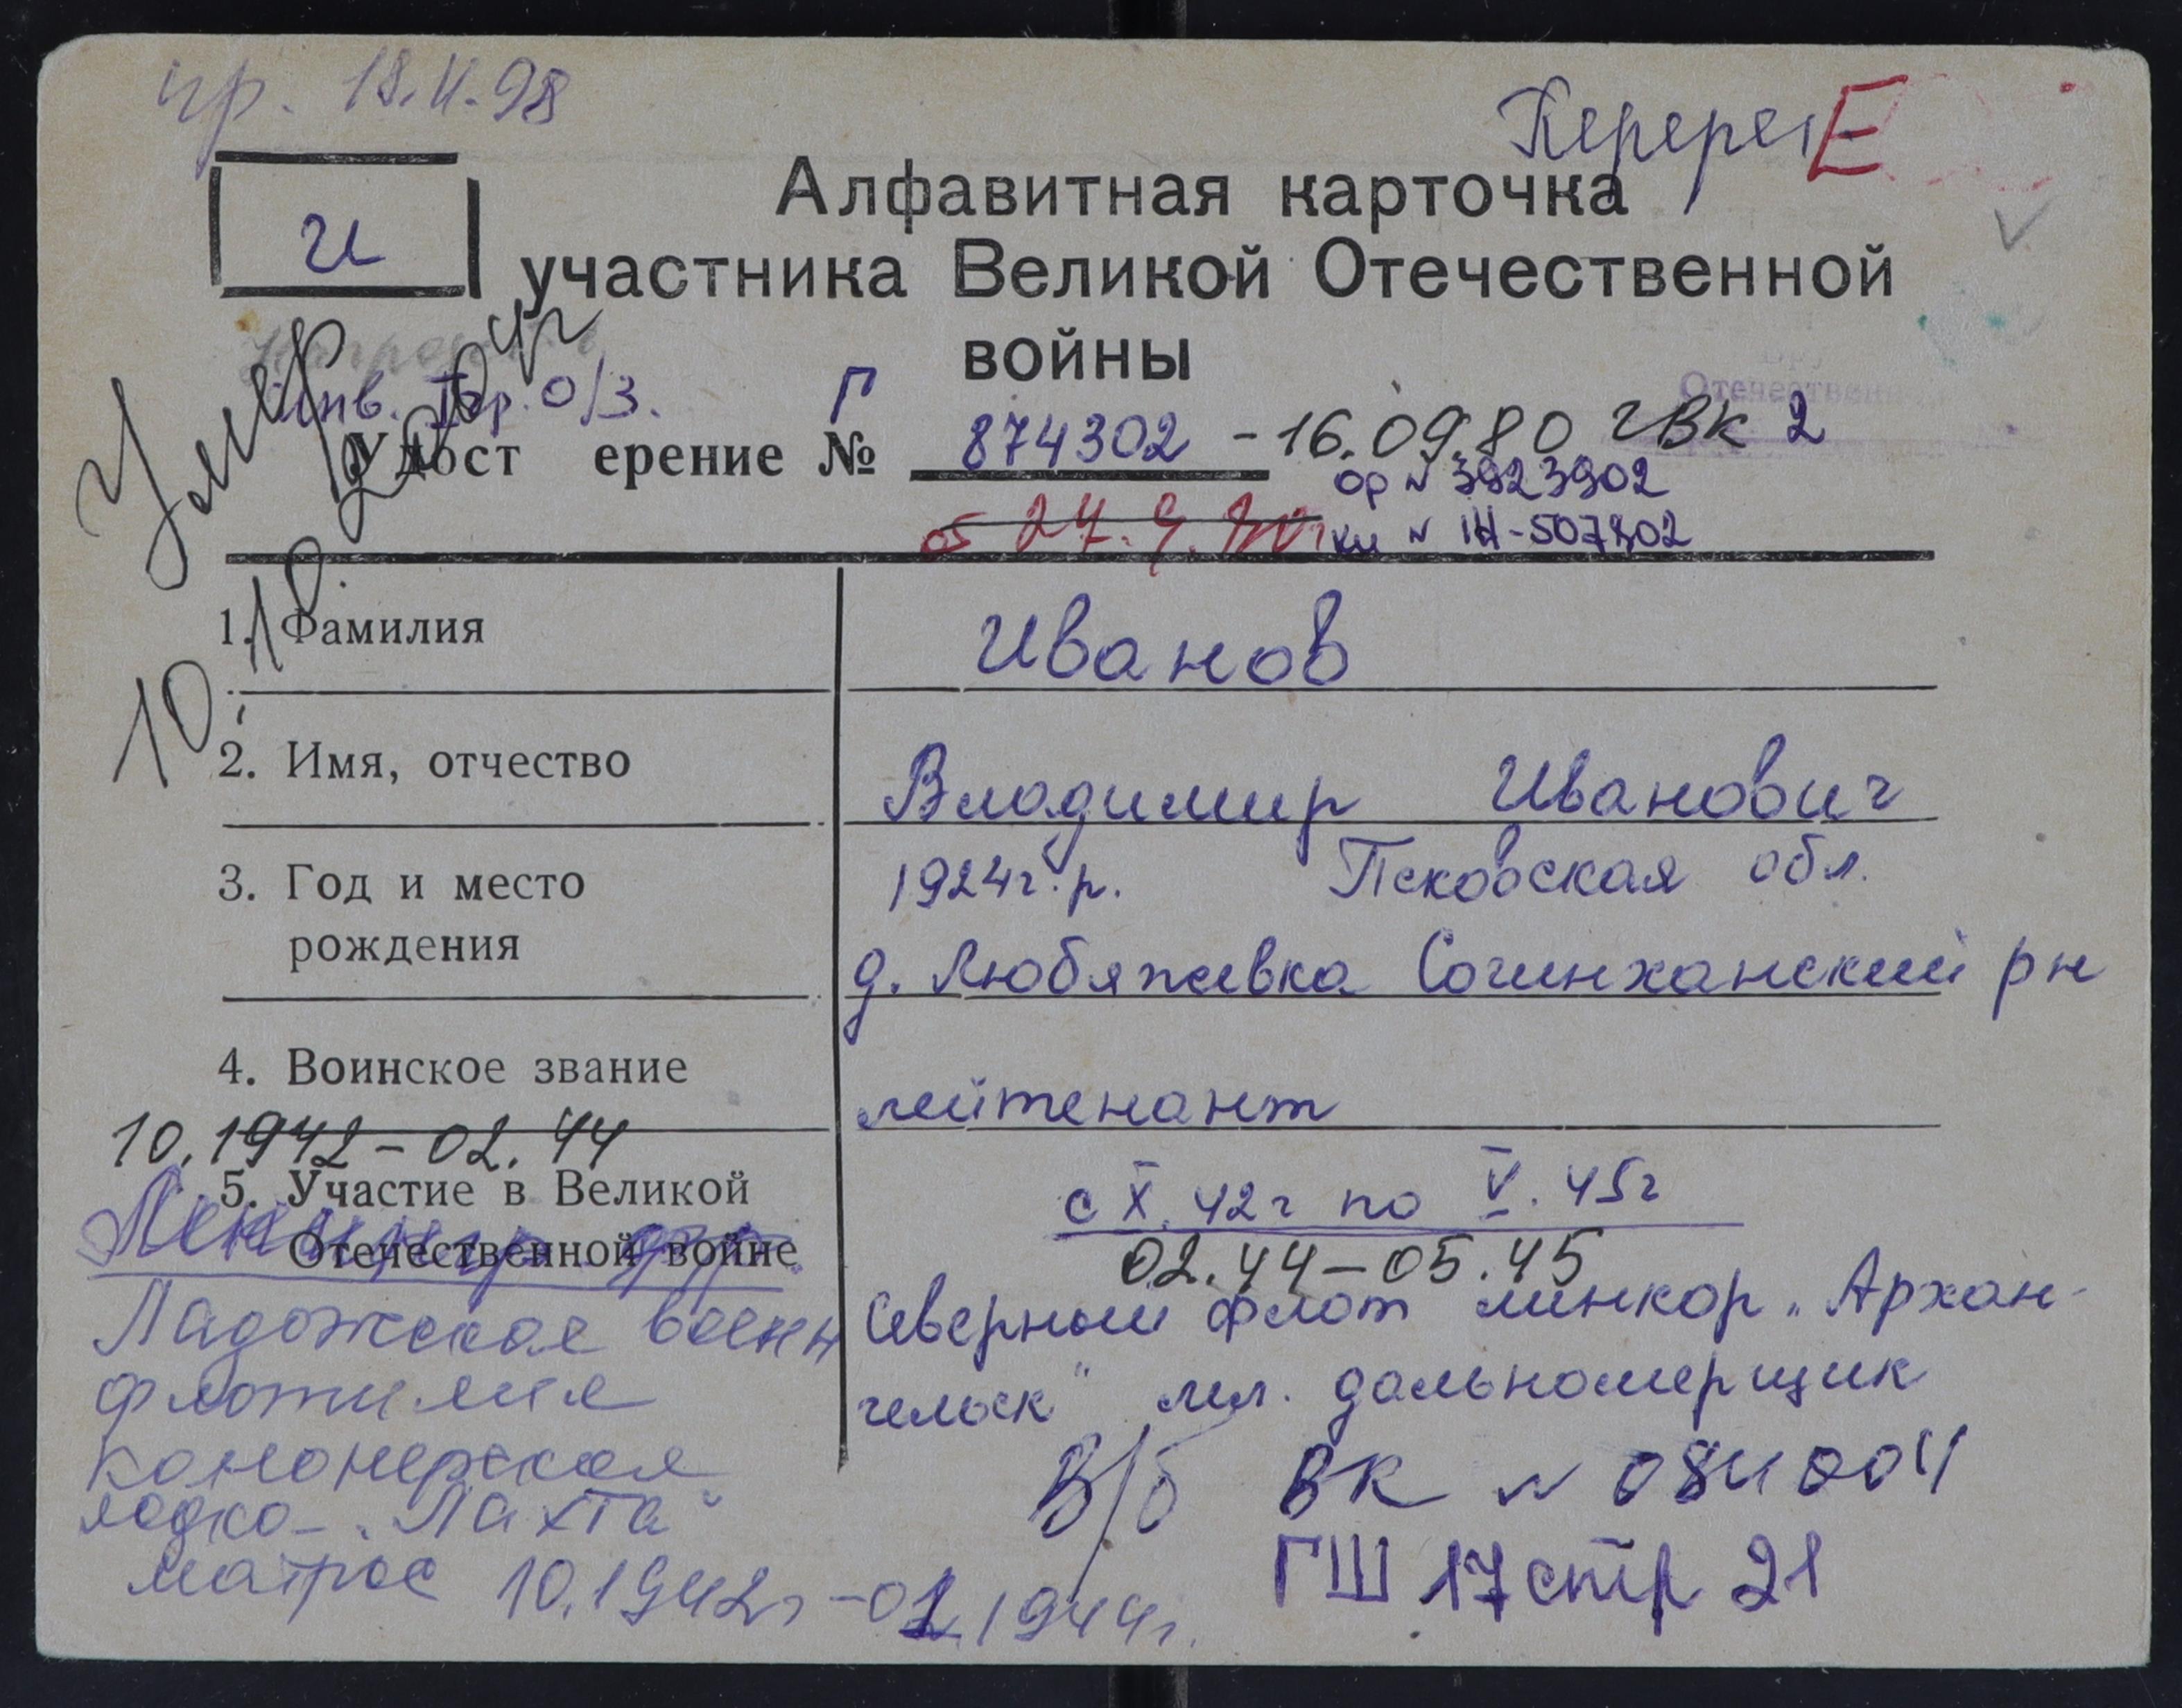 пр. 18.II.98
Перерег
Е
и
Алфавитная карточка
участника Великой Отечественной
войны
Умер 10.10.2004г
инв. II гр. О/З.
Г
Удост ерение № 874302 - 16.09.80 ГВК 2
ор № 3923902
от 24.9.80г
кн № 1Н-507802
1. Фамилия
Иванов
2. Имя, отчество
Владимир Иванович
3. Год и место
рождения
1924г.р. Псковская обл.
д. Любяживка Сошиханский рн
4. Воинское звание
лейтенант
10.1942-02.44
5. Участие в Великой
Отечественной войне
с X.42г по V.45г
02.44-05.45
Ленингр. фр.
Ладожская воен
флотилия
канонерская
лодка - "Лахта"
матрос 10.1942г -02.1944г.
Северный флот линкор "Архан-
гельск" мл. дальномерщик
В/б ВК №
ГШ 17 стр 21